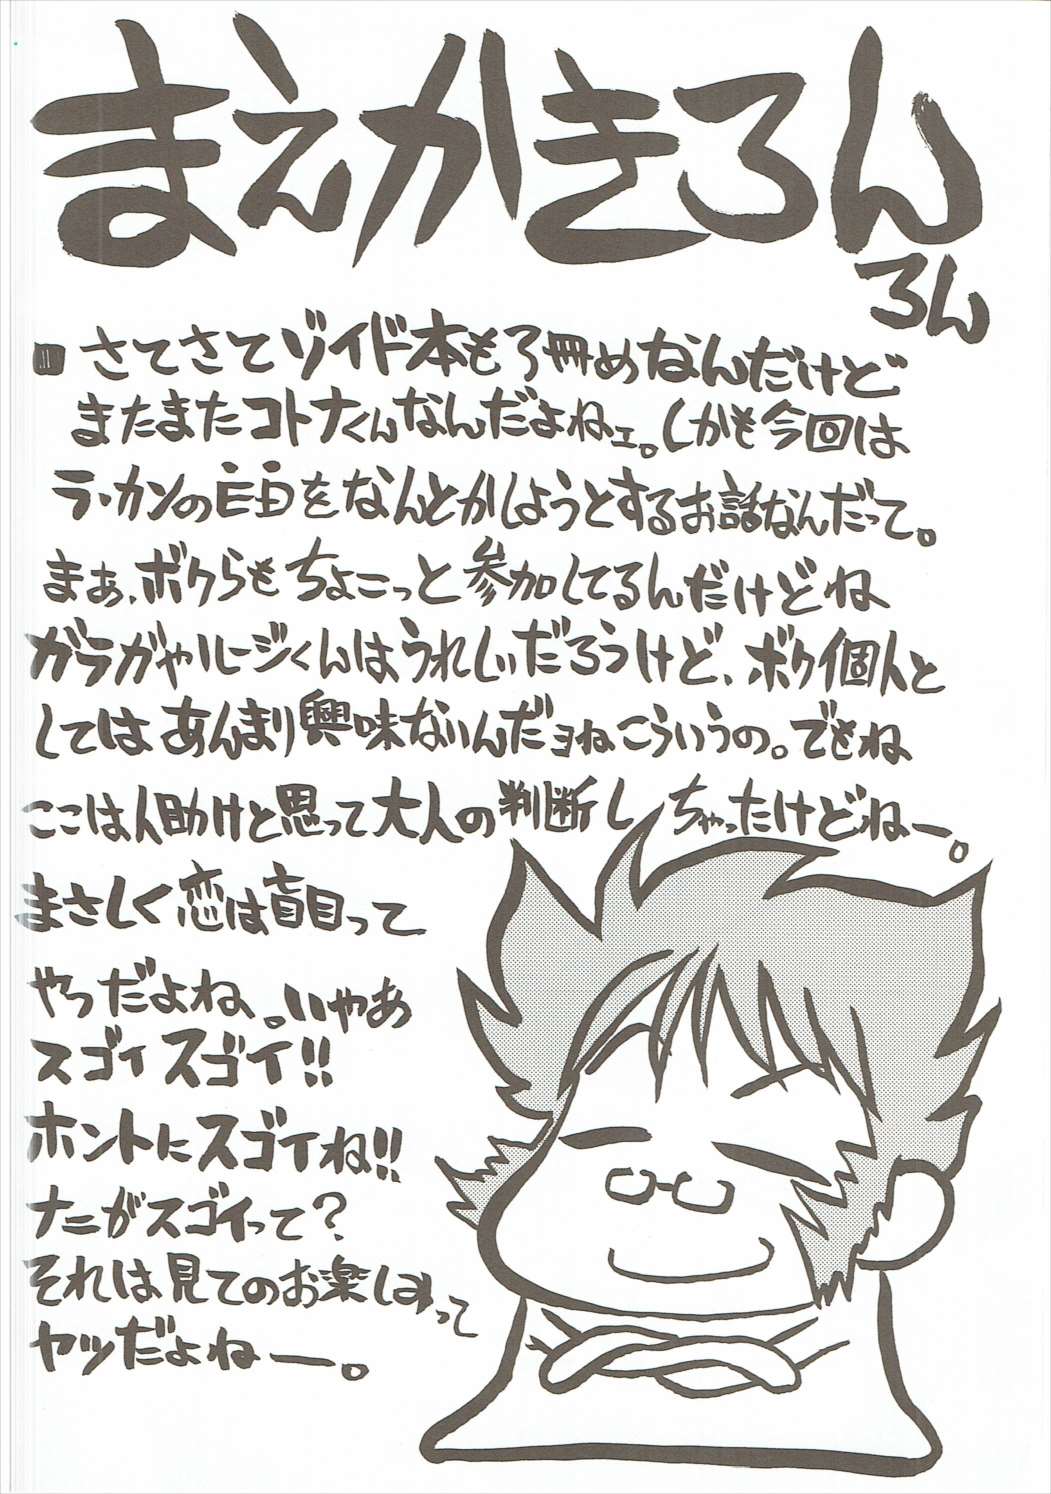 まえかきろん
ろん
さてさてゾイド本も3冊めなんだけど
またまたコトナくんなんだよねェ。しかも今回は
ラ・カンのをなんとかしようとするお話なんだって。
まぁ、ボクらもちょこっと参加してるんだけどね
ガラガやルージくんはうれしいだろうけど、ボク個人と
してはあんまり興味ないんだョねこういうの。でもね
ここは人助けと思って大人の判断しちゃったけどねー。
まさしく恋は盲目って
やつだよね。いやあ
スゴイスゴイ!!
ホントにスゴイね!!
ナニがスゴイって?
それは見てのお楽しみって
ヤツだよねー。